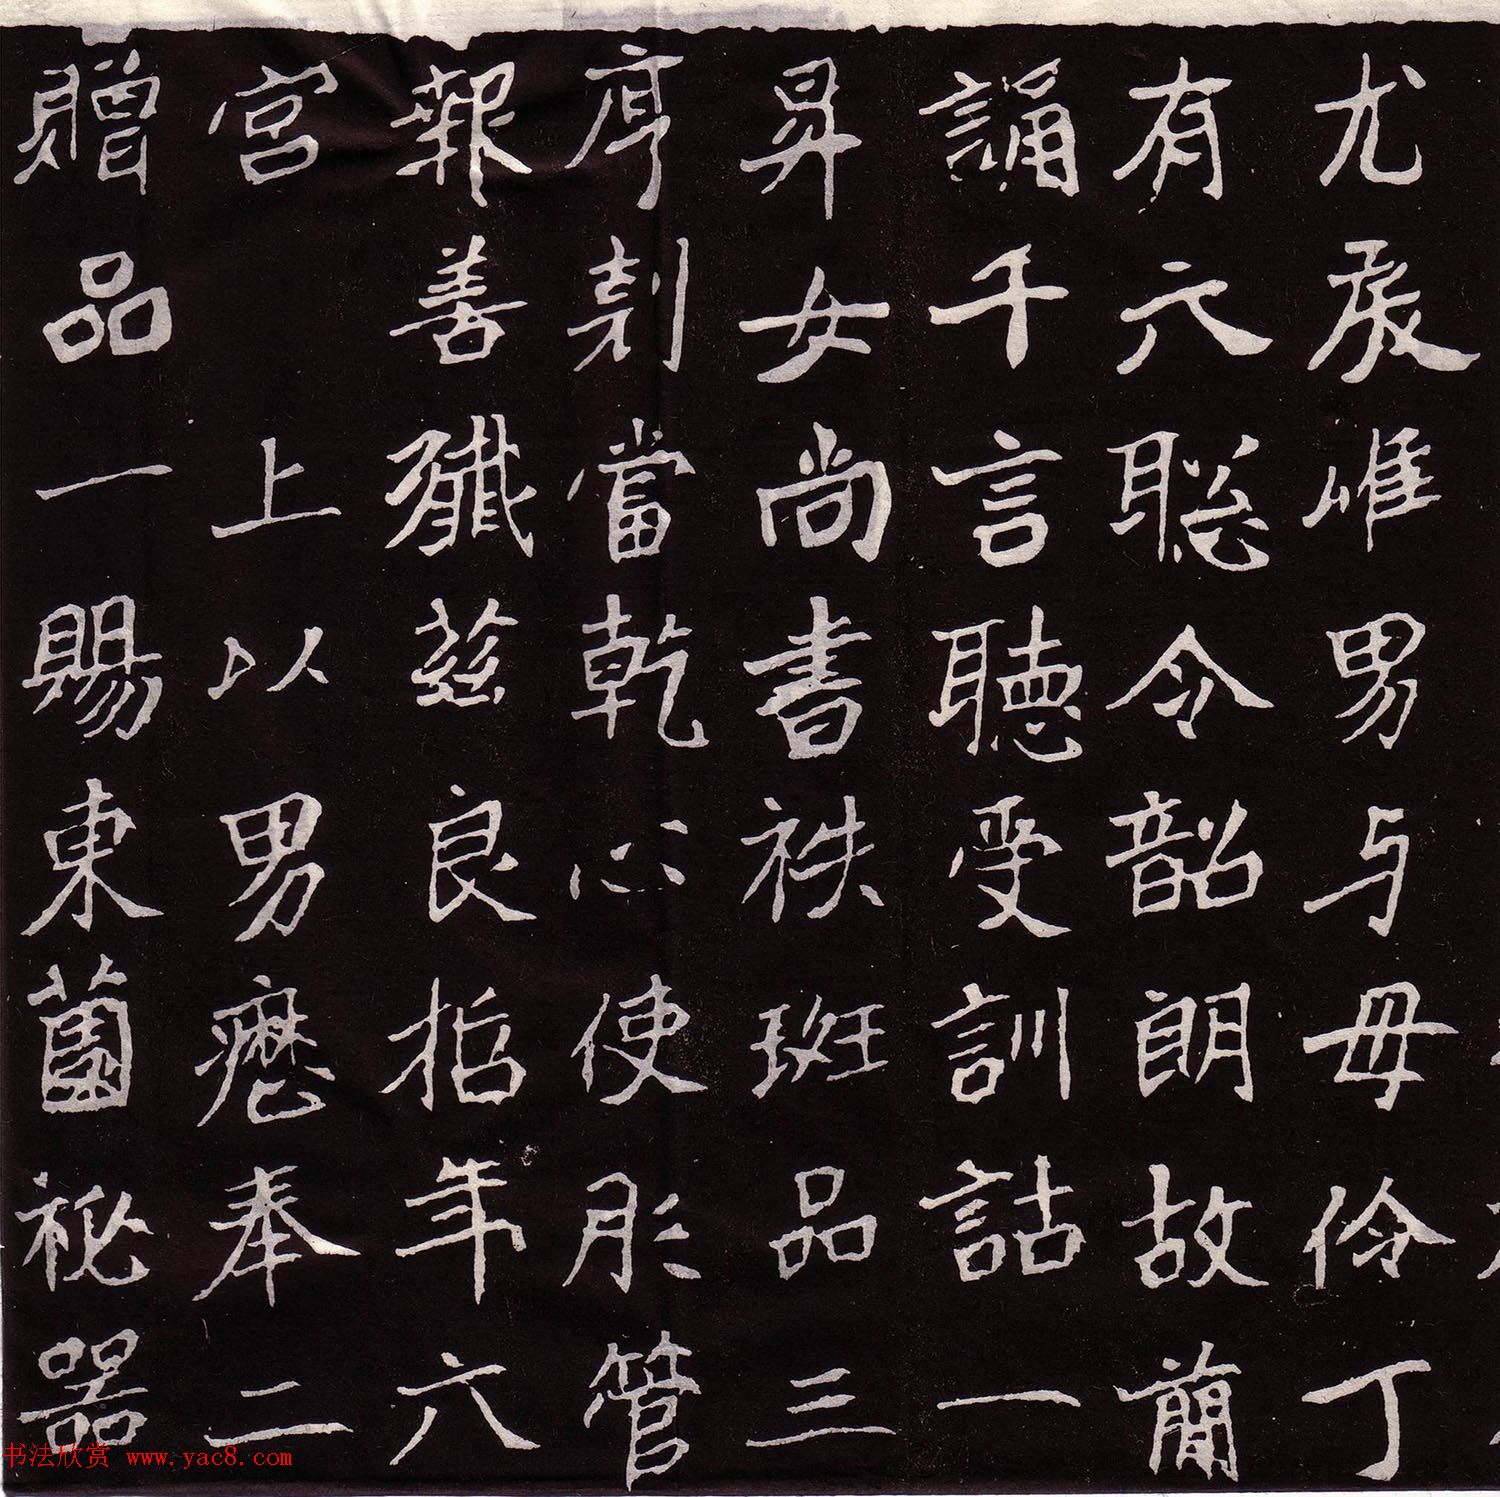 尤唯男与毋伶丁
有六聡令韶朗故蕳
誦千言聽受訓詁一
昇女尚書袟班品三
當乾心使彤管
報善殲兹良哲年六
宫 上以男歷奉二
贈品一賜東薗祕器
书法欣赏 www.yac8.com